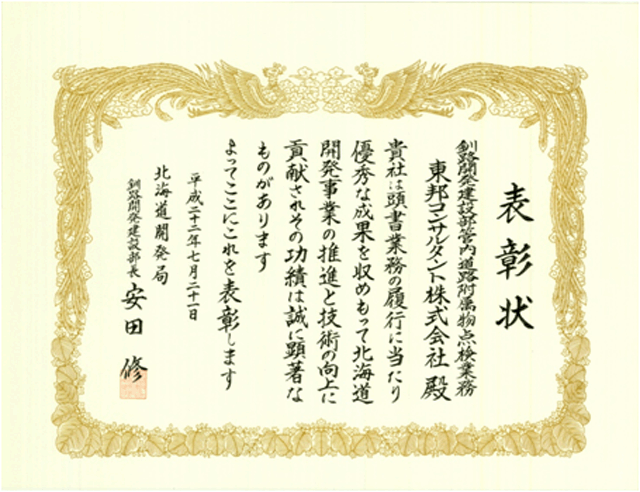 表彰状
釧路開発建設部管内道路附属物点検業務
東邦コンサルタント株式会社 殿
貴社は頭書業務の履行に当たり
優秀な成果を収めもって北海道
開発事業の推進と技術の向上に
貢献されその功績は誠に顕著な
ものがあります
よってここにこれを表彰します
平成二十二年七月二十一日
北海道開発局
釧路開発建設部長 安田 修